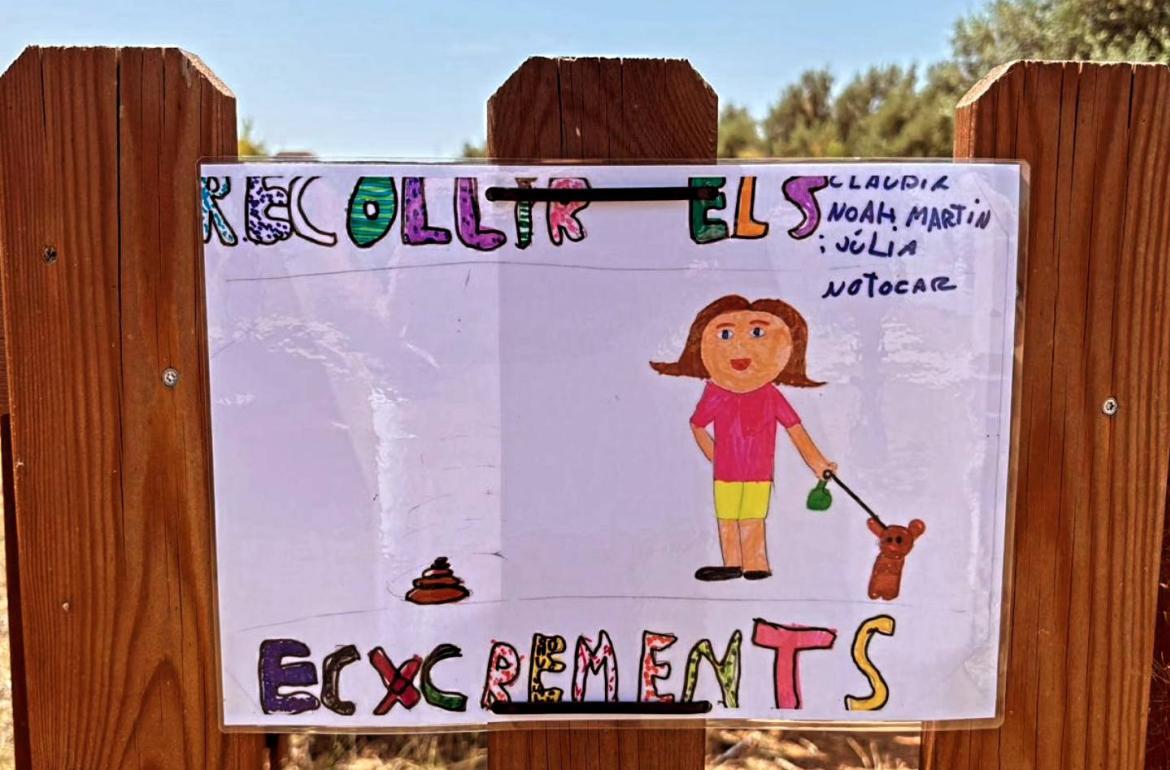 RECOLLIR ELS
CLAUDIA
NOAH, MARTIN
i JÚLIA
NOTOCAR
ECXCREMENTS